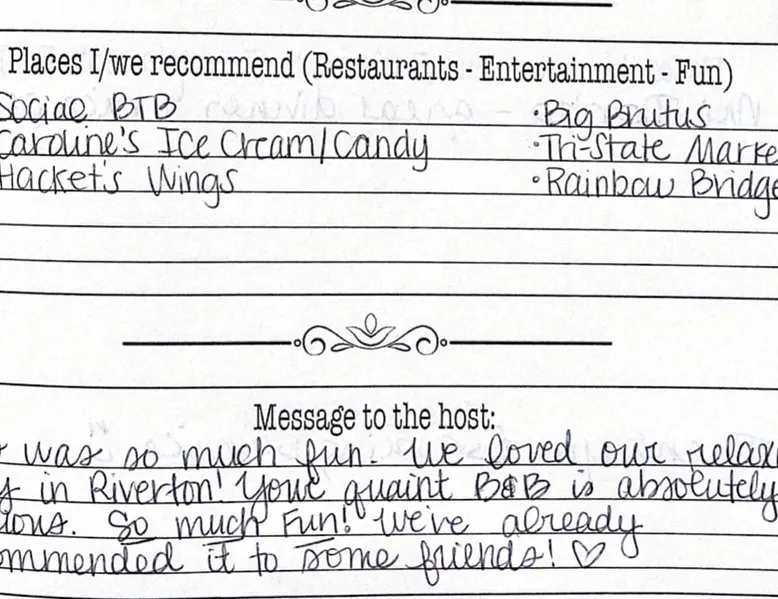 Places I/we recommend (Restaurants - Entertainment - Fun)
Social BTB
Caroline's Ice Cream/Candy
Hacket's Wings
·Big Brutus
·Tri-State Marke
·Rainbow Bridge
Message to the host:
was so much fun. We loved our relax
in Riverton! Your quaint B&B is absolutely
ious. So much Fun! We've already
ommended it to some friends! ♡